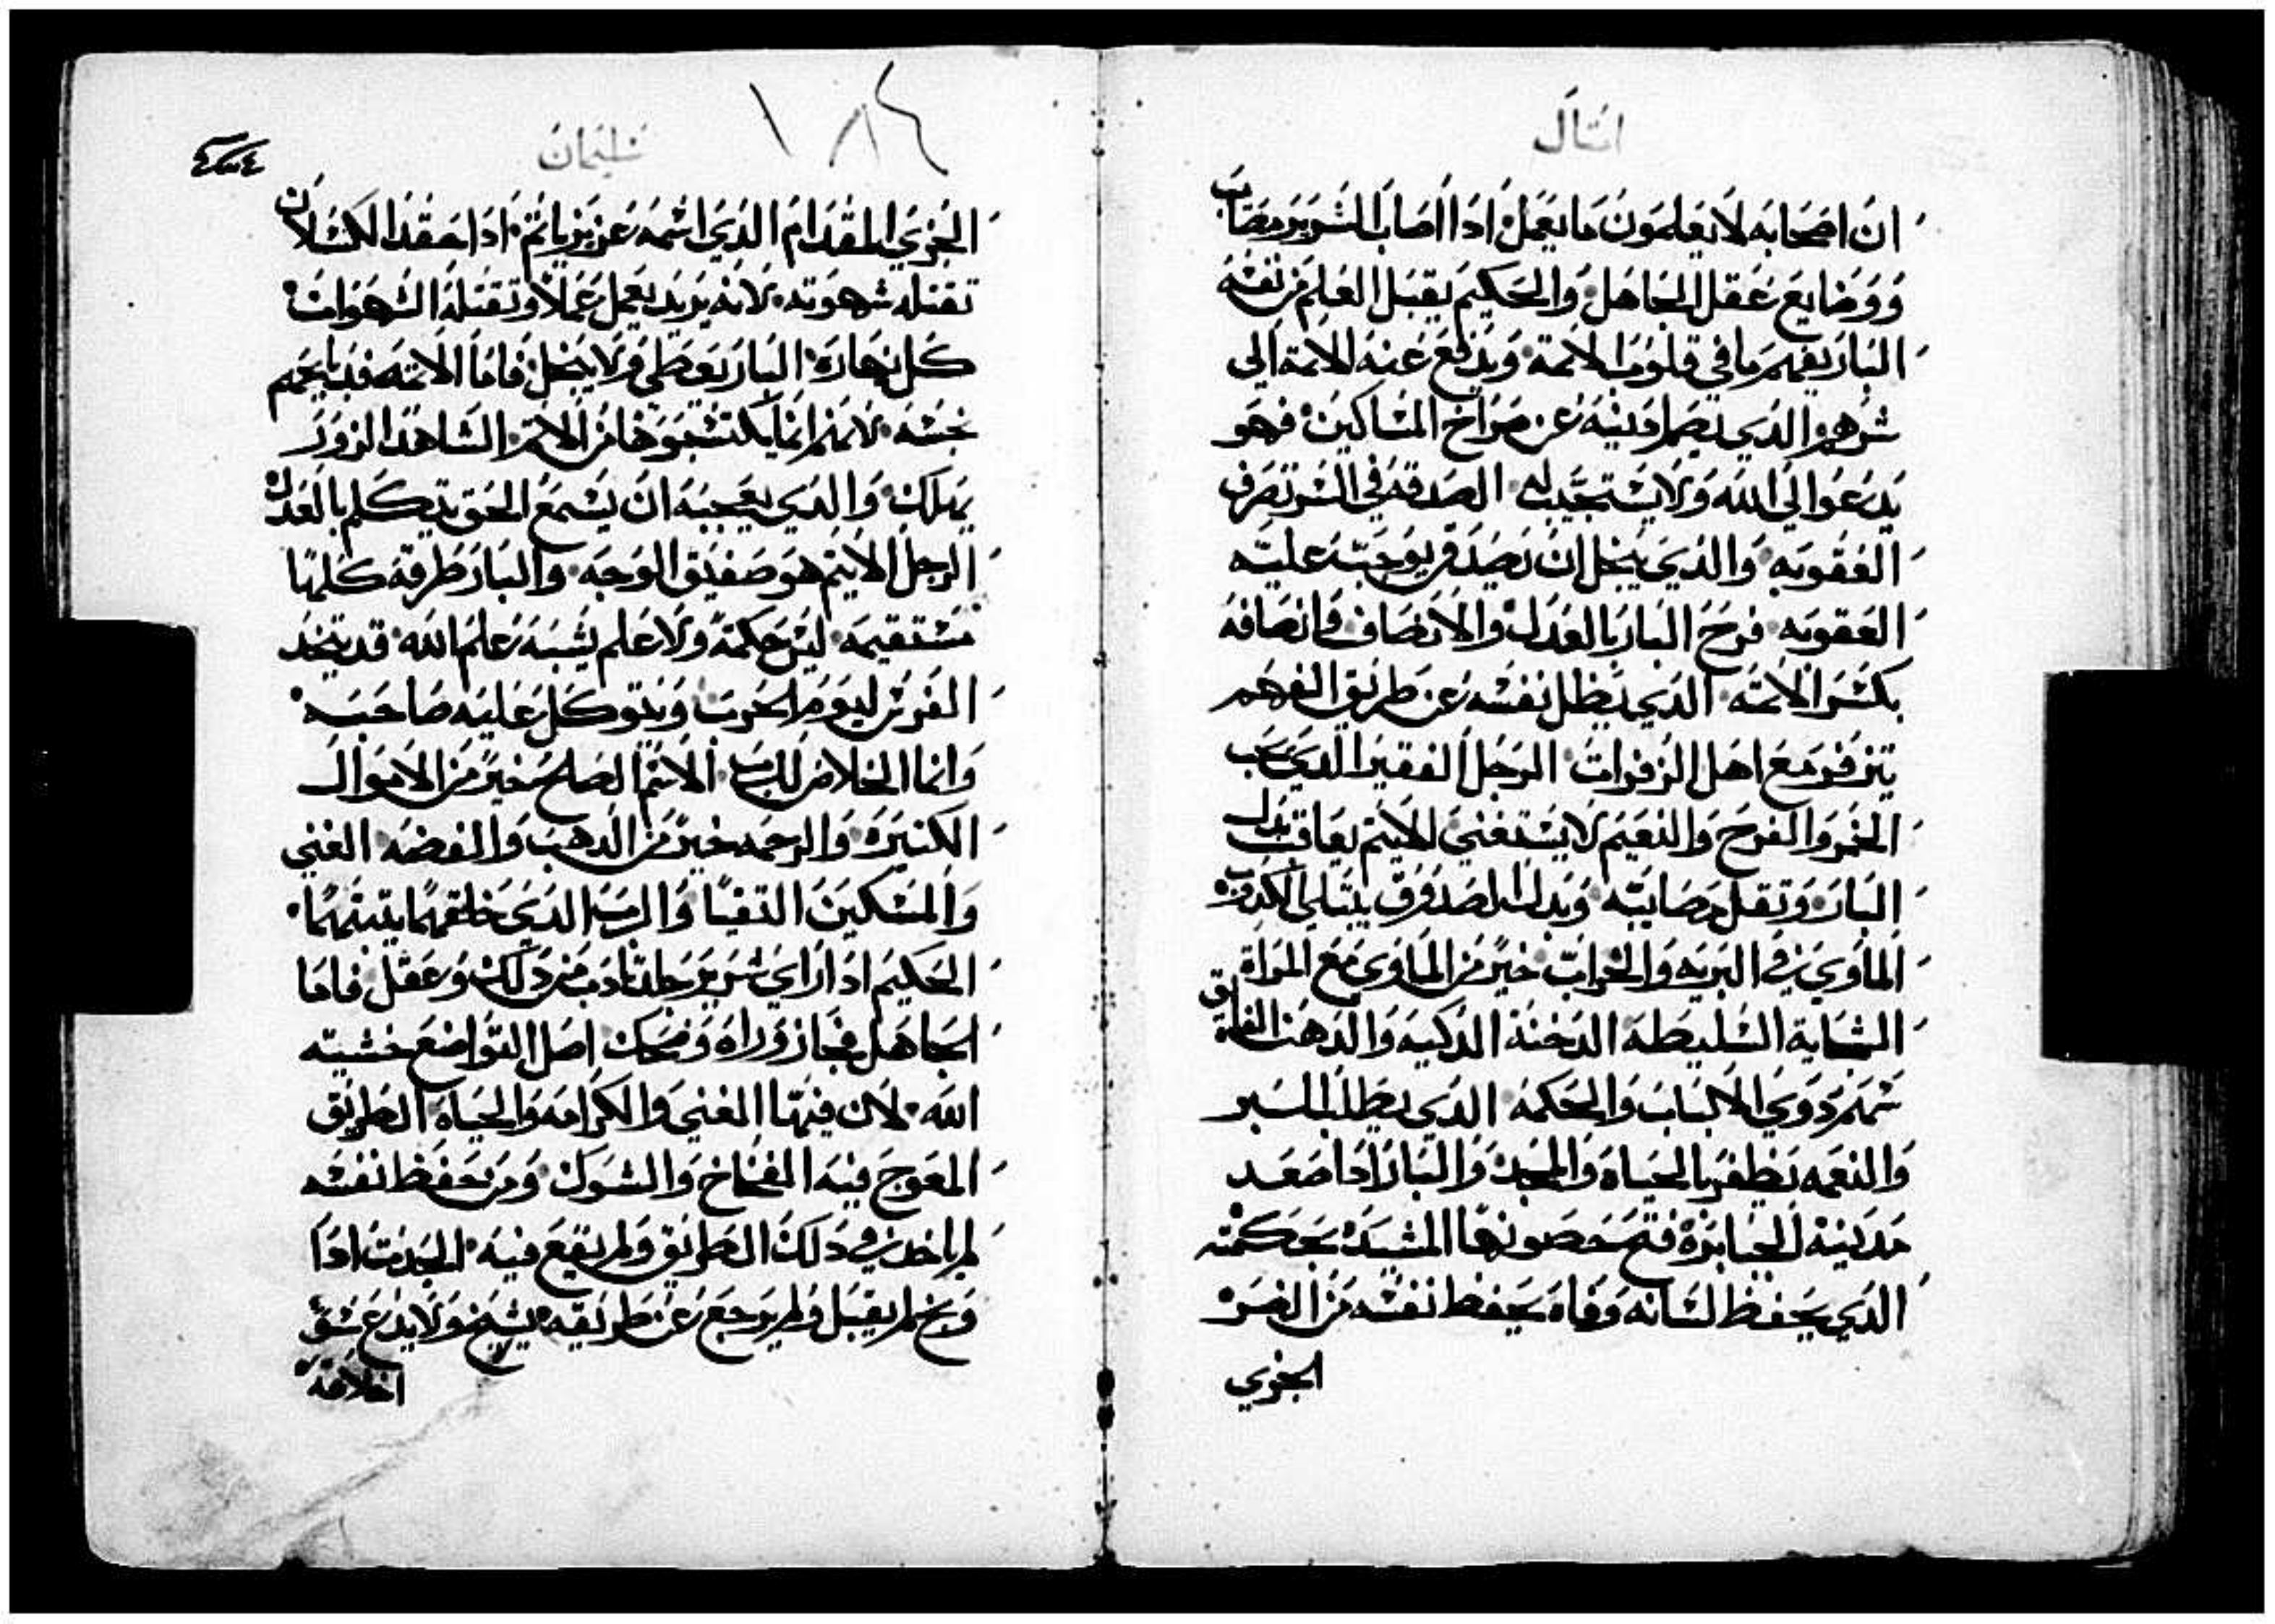 امثال
ان اصحابه لا يعلمون ما يعمل اذا اصاب الشرير مصاب
ووضايع عقل الجاهل والحكيم يقبل العلم من نفسه
البار يفهم ما في قلوب الاثمة ويدفع عنه الاثمة الى
شرهم الدي يصم ادنيه عن صراخ المساكين فهو
يدعوا الي الله ولا يستجيب له الصدقة في السر تصرف
العقوبه والدي يبخل ان يصدق يوجب عليه
العقوبه فرح البار بالعدل والانصاف وانصافه
بكسر الاثمه الدي يظل نفسه عن طريق الفهم
يتزفر مع اهل الزفرات الرجل الفقير الدي يحب
الخمر والفرح والنعيم لا يستغني الاثيم يعاقب بدل
البار وتقل مصايبه وبدل الصدوق يبتلي الكدوب
الماوي في البريه والخراب خير من الماوي مع المراة
الشابة السليطه الدخنة الدكيه والدهن الفايق
شمهم دوي الالباب والحكمه الدي يطلب البر
والنعمه يظفر بالحياه والمجد والبار اذا صعد
مدينه الجبابرة فتح حصونها المشيده بحكمته
الدي يحفظ لسانه وفاه يحفظ نفسه من الضر
الجري
١٨٤
سليمان
الجري المقدام الدي اسمه عزيز ياثم اذا حقد الكسلان
تقتله شهوته لانه يريد يعمل عملا وتقتله الشهوات
كل نهاره البار يعطي ولا يبخل فاما الاثمه فدبايحهم
نجسه لانهم انما يكتسبوها من الاثم الشاهد الزور
يهلك والدي يعجبه ان يسمع الحق يتكلم بالعدل
الرجل الاثيم هو صفيق الوجه والبار طرقه كلها
مستقيمه ليس حكمة ولا علم يشبه علم الله قد يتخد
الفرس ليوم الحرب ويتوكل عليه صاحبه
وانما الخلاص للرب الاسم الصالح خير من الاموال
الكتيره والرحمه خير من الدهب والفضه الغني
والمسكين التقيا والرب الدي خلقهما يتبتهما
الحكيم اذا راي شرير يجلد تادب من دلك وعقل فاما
الجاهل فجاز وراه وضحك اصل التواضع خشيته
الله لان فيها الغني والكرامه والحياه الطريق
المعوج فيه الفخاخ والشوك ومن يحفظ نفسه
لم ياخد في دلك الطريق ولم يقع فيه الحدت اذا
وبخ لم يقبل ولم يرجع عن طريقه يشيخ ولا يدع عشق
اخلاقه